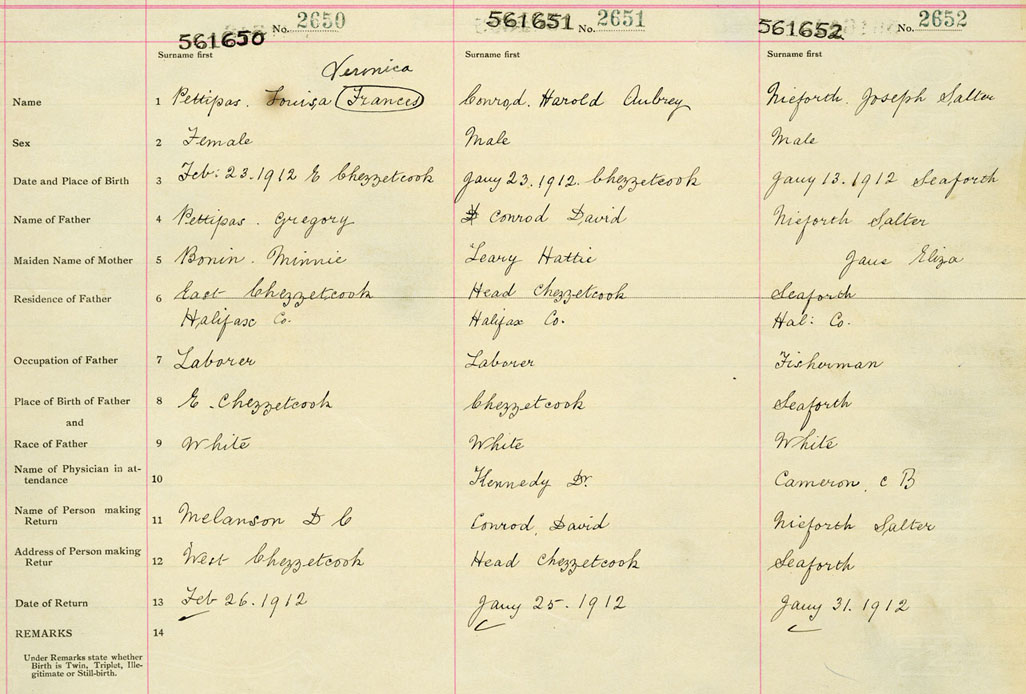 561650 No. 2650 561651 No. 2651 561652 No. 2652
Surname first Surname first Surname first
Veronica
Name 1 Pettipas. Louisa (Frances) Conrod. Harold Aubrey Nieforth. Joseph Salter
Sex 2 Female Male Male
Date and Place of Birth 3 Feb: 23. 1912 E Chezzetcook Jany 23. 1912. Chezzetcook Jany 13. 1912 Seaforth
Name of Father 4 Pettipas. Gregory Conrod David Nieforth Salter
Maiden Name of Mother 5 Bonin. Minnie Leary Hattie Jane Eliza
Residence of Father 6 East Chezzetcook Head Chezzetcook Seaforth
Halifax Co. Halifax Co. Hal: Co.
Occupation of Father 7 Laborer Laborer Fisherman
Place of Birth of Father 8 E. Chezzetcook Chezzetcook Seaforth
and
Race of Father 9 White White White
Name of Physician in at-
tendance 10 Kennedy Dr. Cameron, C B
Name of Person making
Return 11 Melanson D C Conrod, David Nieforth Salter
Address of Person making
Retur 12 West Chezzetcook Head Chezzetcook Seaforth
Date of Return 13 Feb 26. 1912 Jany 25. 1912 Jany 31. 1912
REMARKS 14
Under Remarks state whether
Birth is Twin, Triplet, Ille-
gitimate or Still-birth.